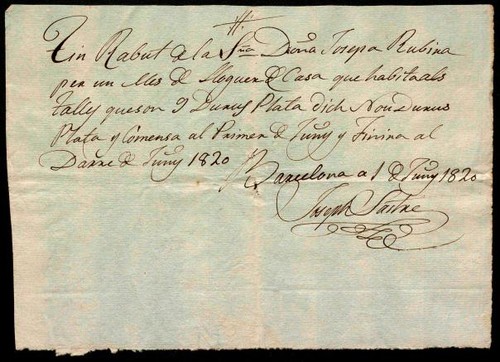 Tin Rabut de la Sña Doña Josepa Rubira
per un Mes de Lloguer de Casa que habita als
Tallers que son 9 Durus Plata dich Nou Durus
Plata y Comensa al Primer de Juny y Finira al
Darre de Juny 1820
Barcelona a 1 de Juny 1820
Joseph Sastre